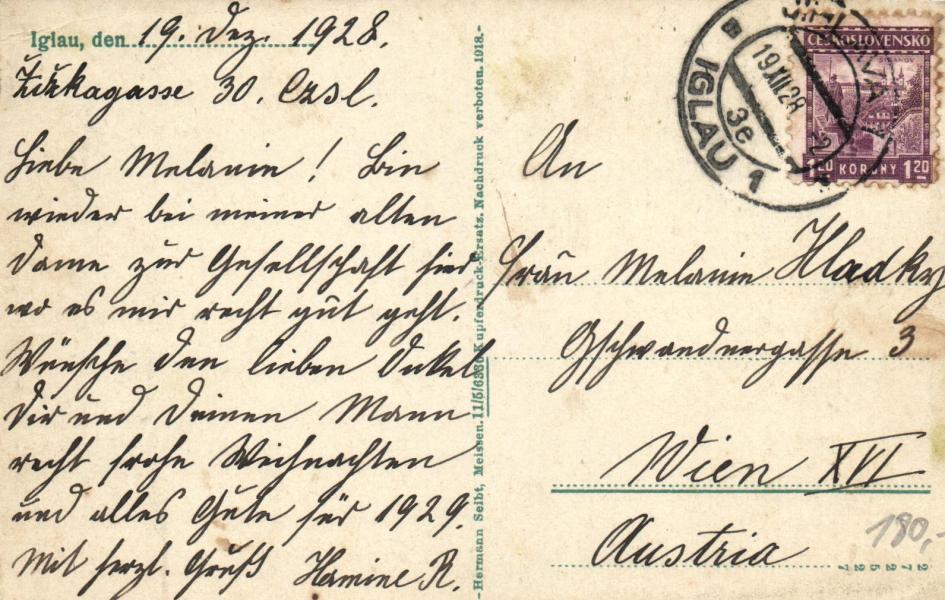 Iglau, den 19. Dez. 1928.
Žižkagasse 30. Czsl.
Liebe Melanie! Bin
wieder bei meiner alten
Dame zur Gesellschaft hier
wo es mir recht gut geht.
Wünsche den lieben Onkel
Dir und Deinen Mann
recht frohe Weihnachten
und alles Gute für 1929.
Mit herzl. Gruß Hamine R.
-Hermann Seibt, Meissen. 11/5/6380 Kupferdruck-Ersatz. Nachdruck verboten. 1918.-
IGLAU 1
19.XII.28
3e
ČESKOSLOVENSKO
1.20 KORUNY 1.20
An
Frau Melanie Hladky
Gschwandnergasse 3
Wien XVI
Austria
180,-
2 2 5 2 7